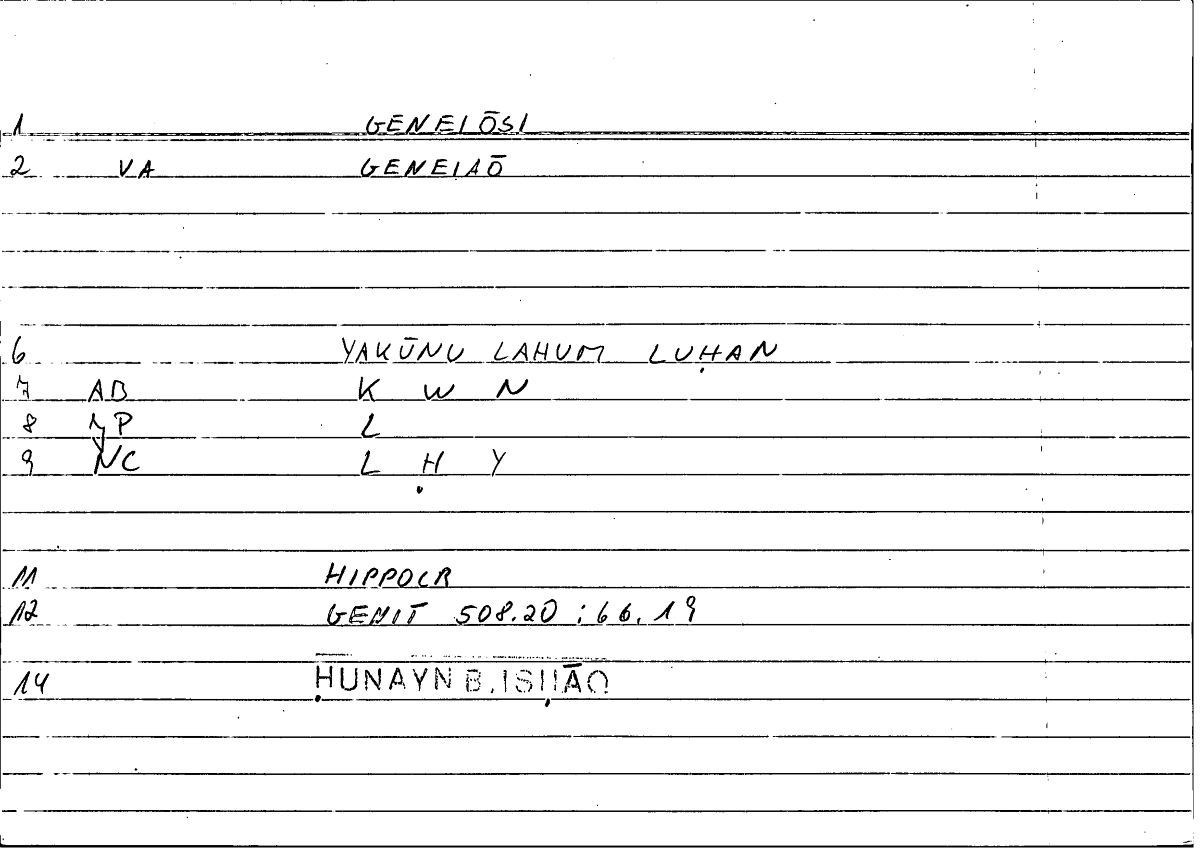 1 GENEIŌSI
2 VA GENEIAŌ
6 YAKŪNU LAHUM LUḤAN
7 AB K W N
8 JP L
9 NC L Ḥ Y
11 HIPPOCR
12 GENIT 508.20 : 66.19
14 ḤUNAYN B. ISḤĀQ